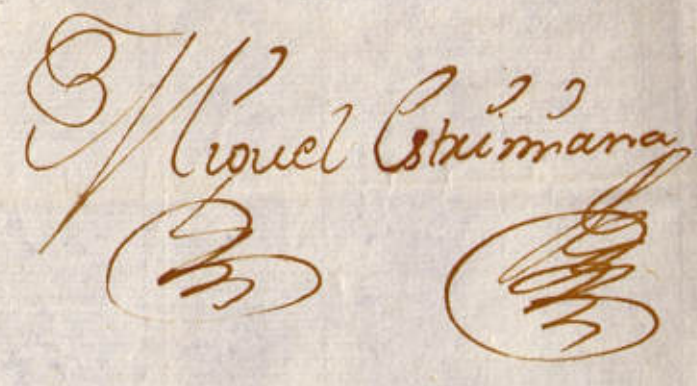 Miguel Estruimana